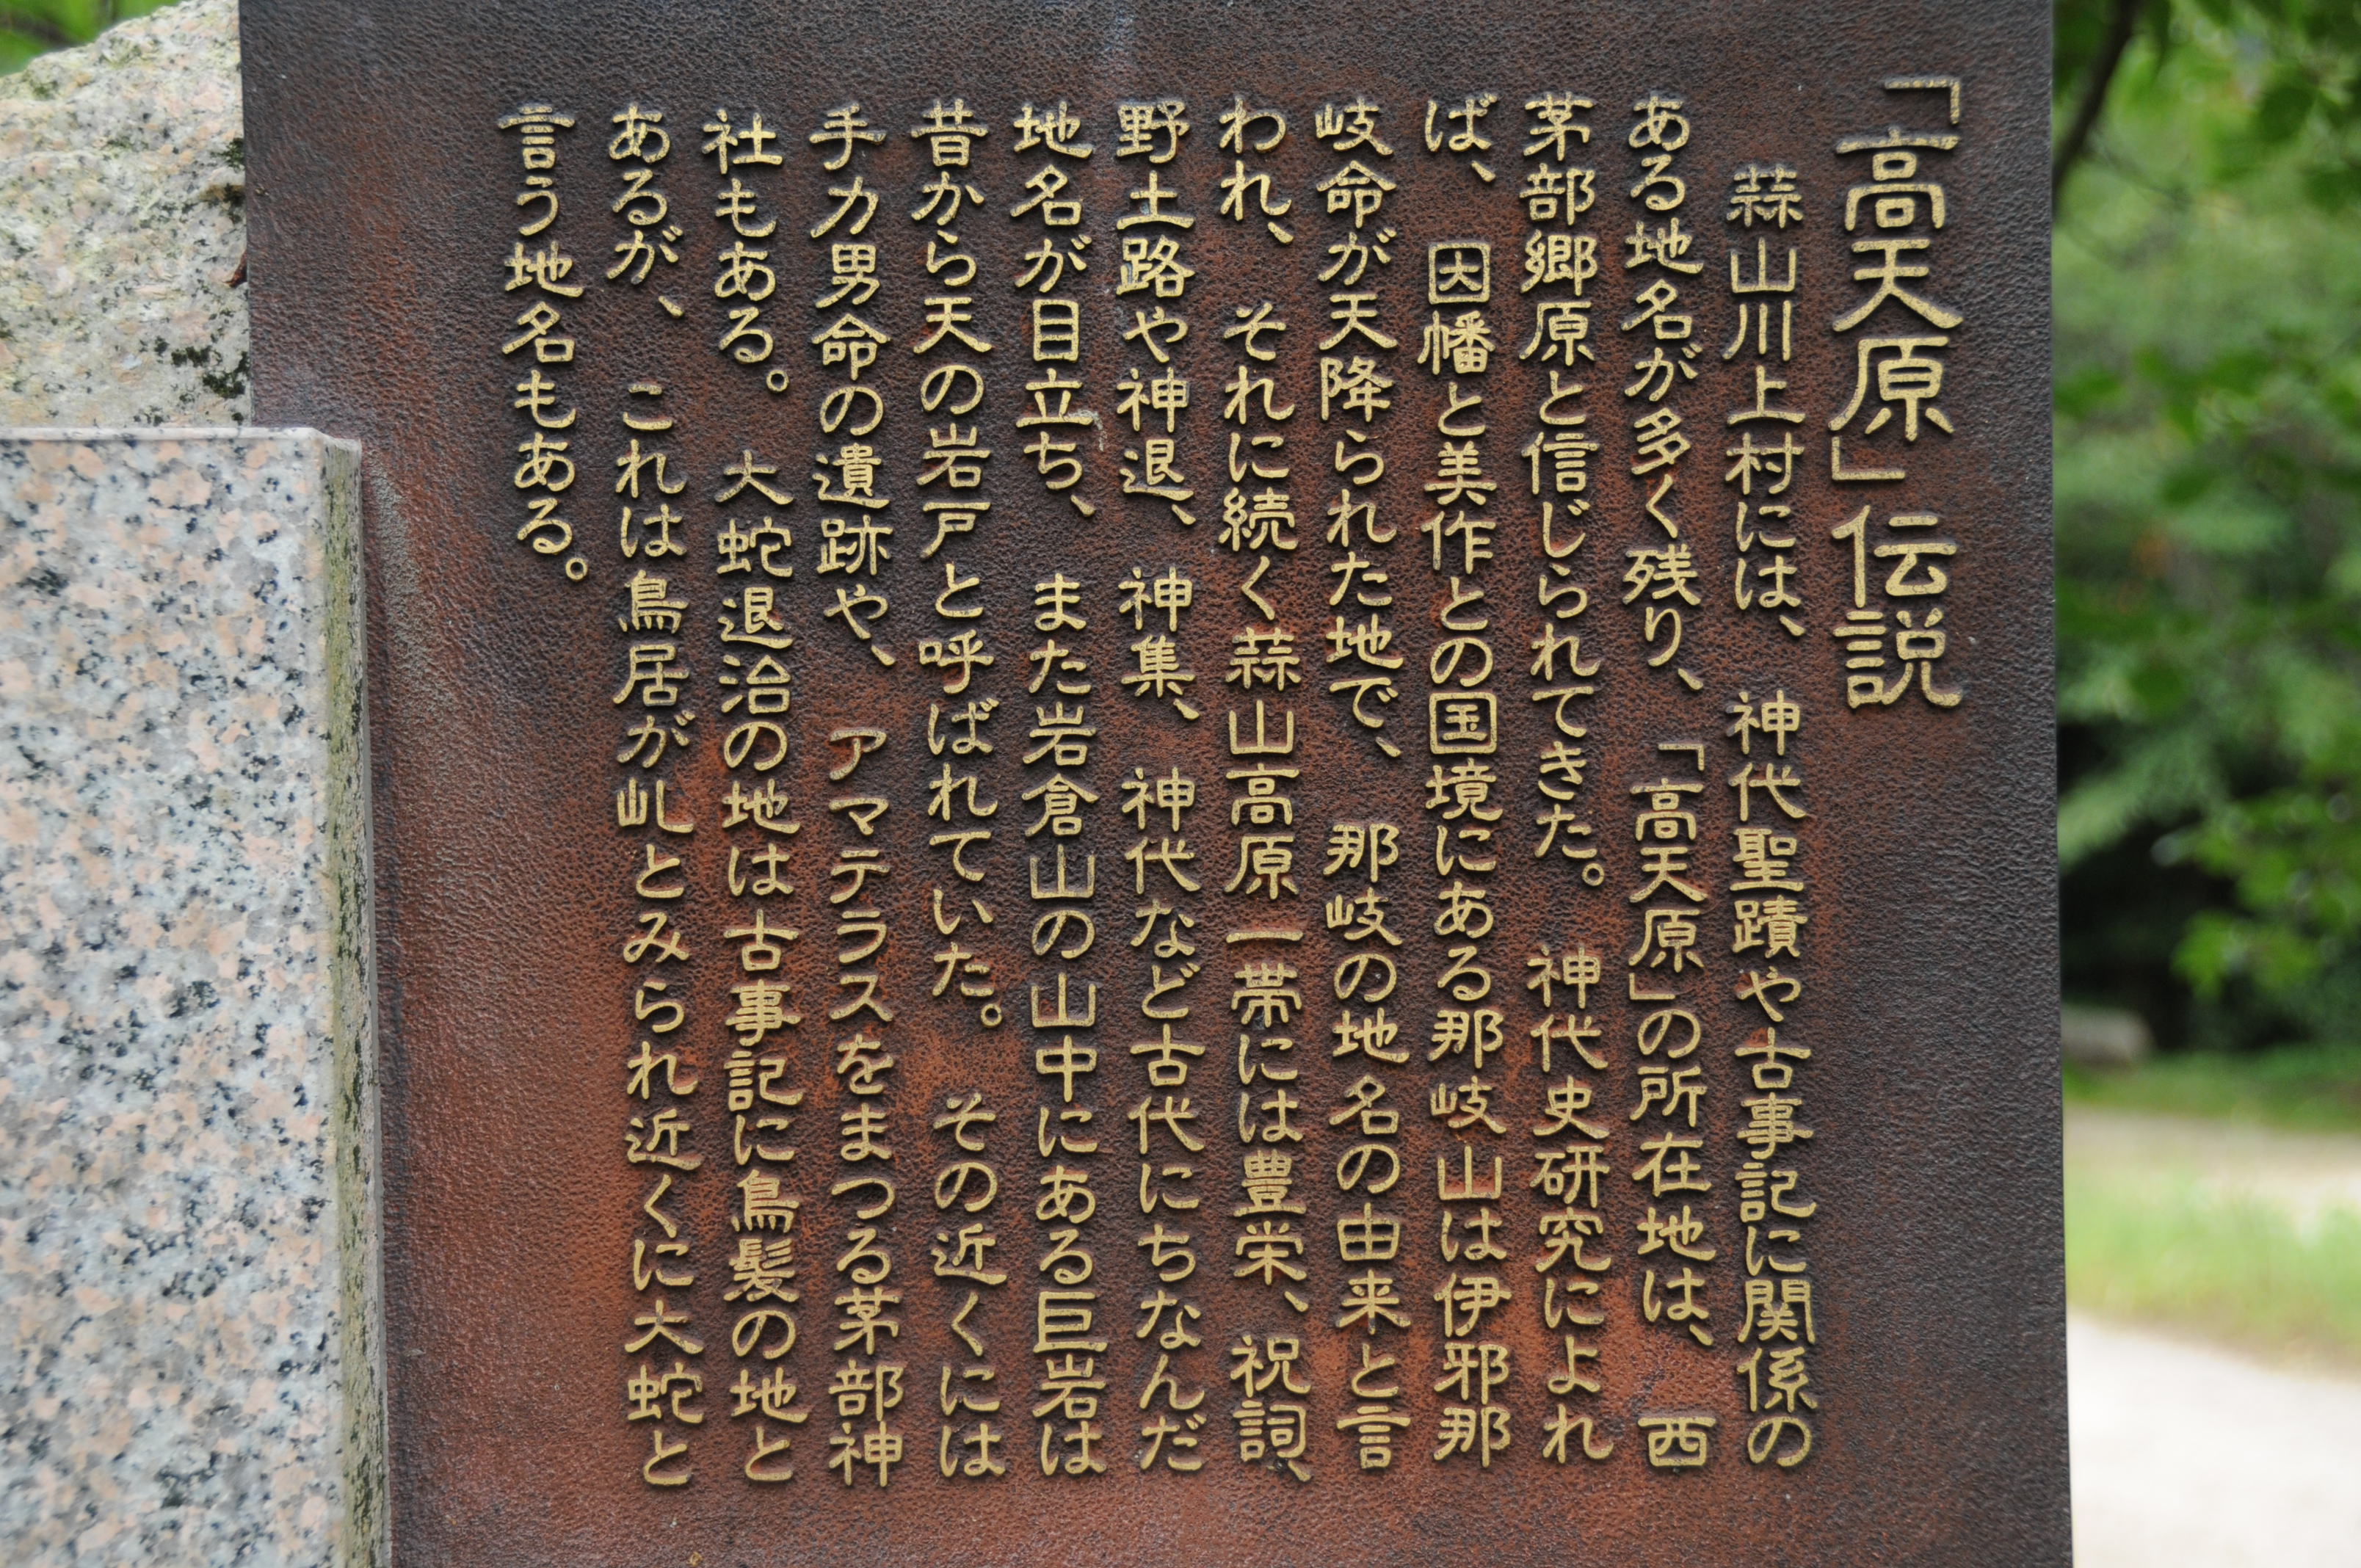 「高天原」伝説
蒜山川上村には、神代聖蹟や古事記に関係の
ある地名が多く残り、「高天原」の所在地は、西
茅部郷原と信じられてきた。神代史研究によれ
ば、因幡と美作との国境にある那岐山は伊邪那
岐命が天降られた地で、那岐の地名の由来と言
われ、それに続く蒜山高原一帯には豊栄、祝詞、
野土路や神退、神集、神代など古代にちなんだ
地名が目立ち、また岩倉山の山中にある巨岩は
昔から天の岩戸と呼ばれていた。その近くには
手力男命の遺跡や、アマテラスをまつる茅部神
社もある。大蛇退治の地は古事記に鳥髪の地と
あるが、これは鳥居が乢とみられ近くに大蛇と
言う地名もある。